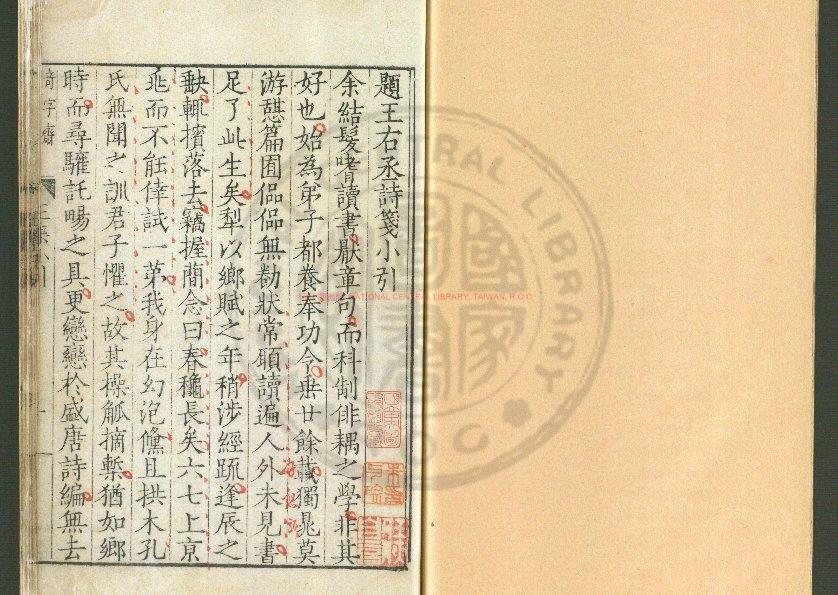 題王右丞詩箋小引
余結髮嗜讀書厭章句而科制俳耦之學非其
好也始為弟子都養奉功令垂廿餘載獨晁莫
游憇篇囿侷侷無勸狀常願讀遍人外未見書
足了此生矣犁以鄉賦之年稍涉經疏逢辰之
缺輒擯落去竊握蘭念曰春穐長矣六七上京
兆而不能倖試一第我身在幻泡儵且拱木孔
氏無聞之訓君子懼之故其操觚摘槧猶如鄉
時而尋驩託暢之具更戀戀於盛唐詩編無去
奇字齋
NATIONAL CENTRAL LIBRARY, TAIWAN, R.O.C